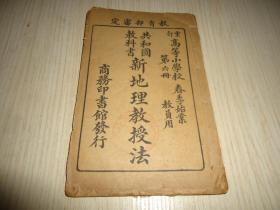 定審部育教
重訂
高等小學校 春季始業
第六冊 教員用
共和國
教科書
新地理教授法
商務印書館發行